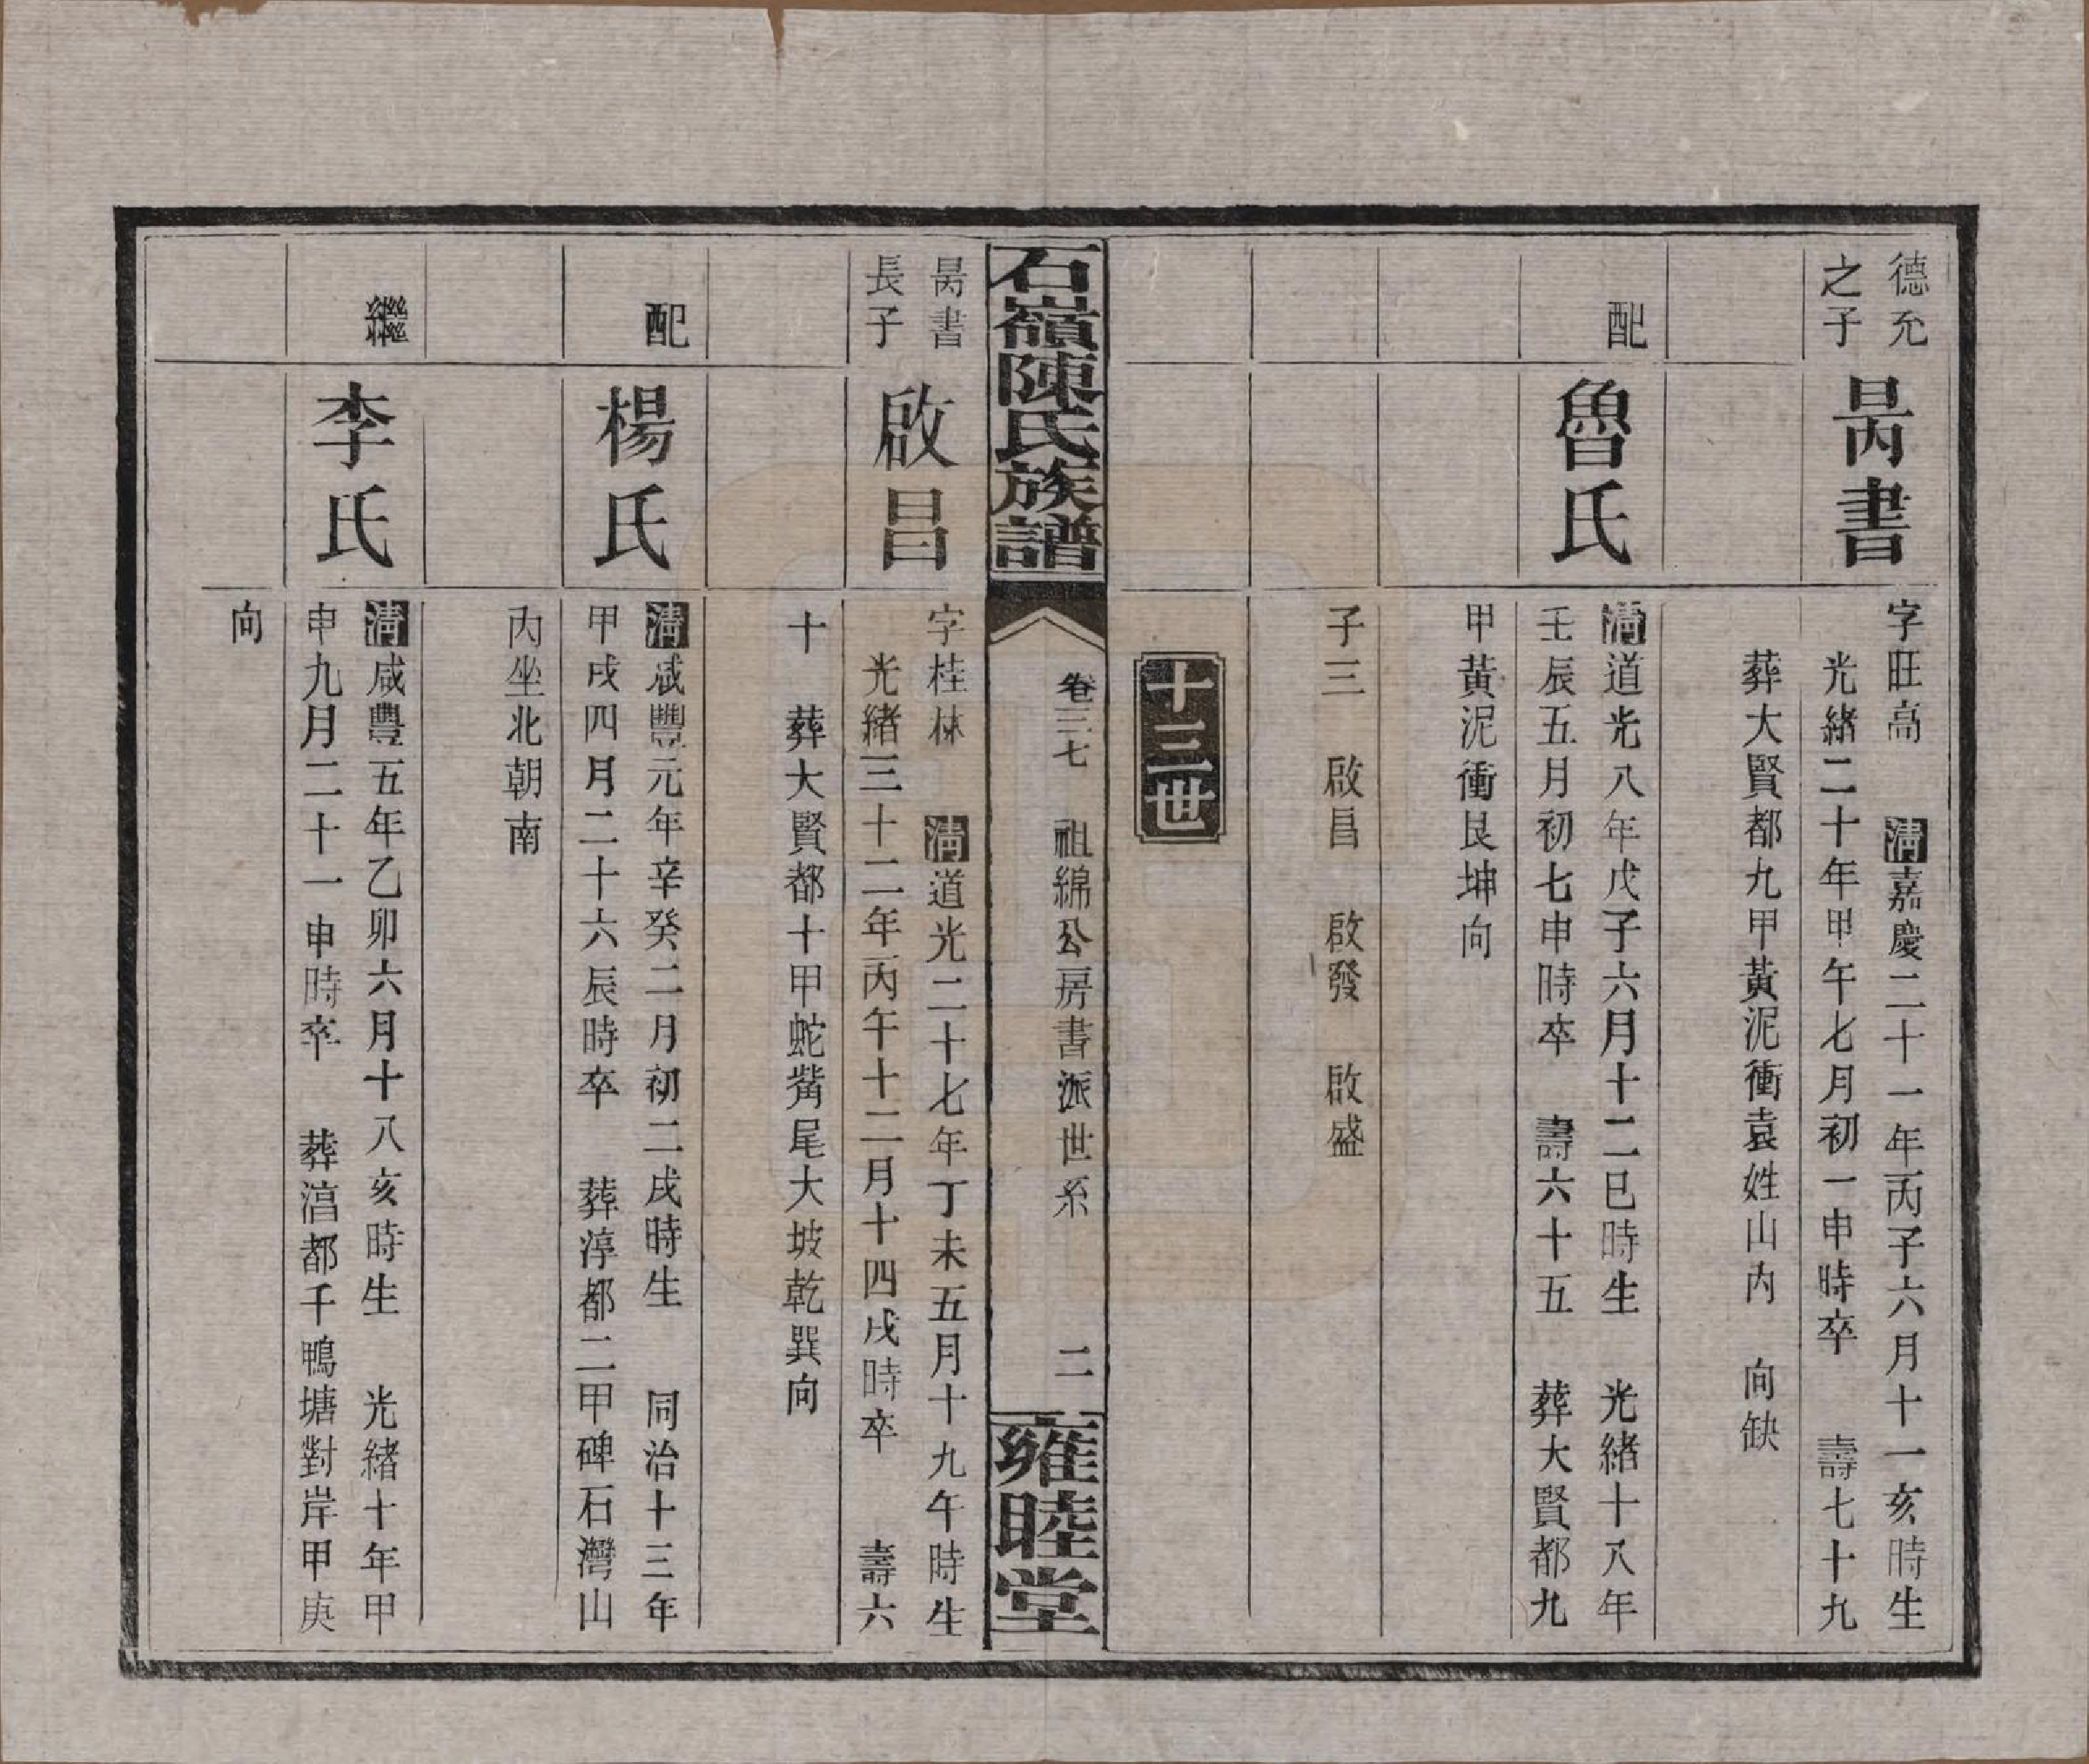 德允
之子
昺書
字旺高 清嘉慶二十一年丙子六月十一亥時生
光緒二十年甲午七月初一申時卒 壽七十九
葬大賢都九甲黃泥衝袁姓山內 向缺
配
魯氏
清道光八年戊子六月十二巳時生 光緒十八年
壬辰五月初七申時卒 壽六十五 葬大賢都九
甲黃泥衝艮坤向
子三 啟昌 啟發 啟盛
十三世
石嶺陳氏族譜
卷三七 祖綿公房書派世系 二
雍睦堂
昺書
長子
啟昌
字桂林 清道光二十七年丁未五月十九午時生
光緒三十二年丙午十二月十四戌時卒 壽六
十 葬大賢都十甲蛇觜尾大坡乾巽向
配
楊氏
清咸豐元年辛癸二月初二戌時生 同治十三年
甲戌四月二十六辰時卒 葬淳都二甲碑石灣山
內坐北朝南
繼
李氏
清咸豐五年乙卯六月十八亥時生 光緒十年甲
申九月二十一申時卒 葬淳都千鴨塘對岸甲庚
向